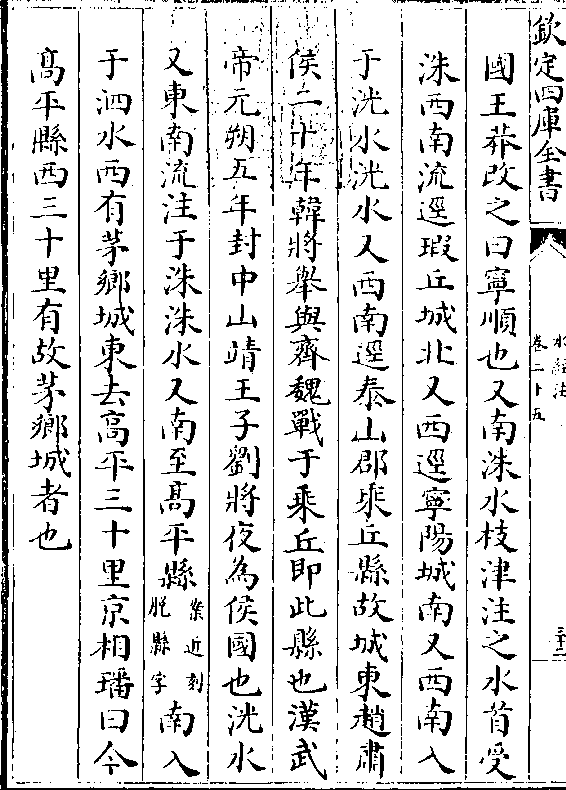 欽定四庫全書
水經注
卷二十五
國王莽改之曰寧順也又南洙水枝津注之水首受
洙西南流逕瑕丘城北又西逕寧陽城南又西南入
于洸水洸水又西南逕泰山郡乗丘縣故城東趙肅
侯二十年韓將舉與齊魏戰于乗丘即此縣也漢武
帝元朔五年封中山靖王子劉將夜為侯國也洸水
又東南流注于洙洙水又南至髙平縣案近刻脱縣字南入
于泗水西有茅鄉城東去髙平三十里京相璠曰今
髙平縣西三十里有故茅鄉城者也